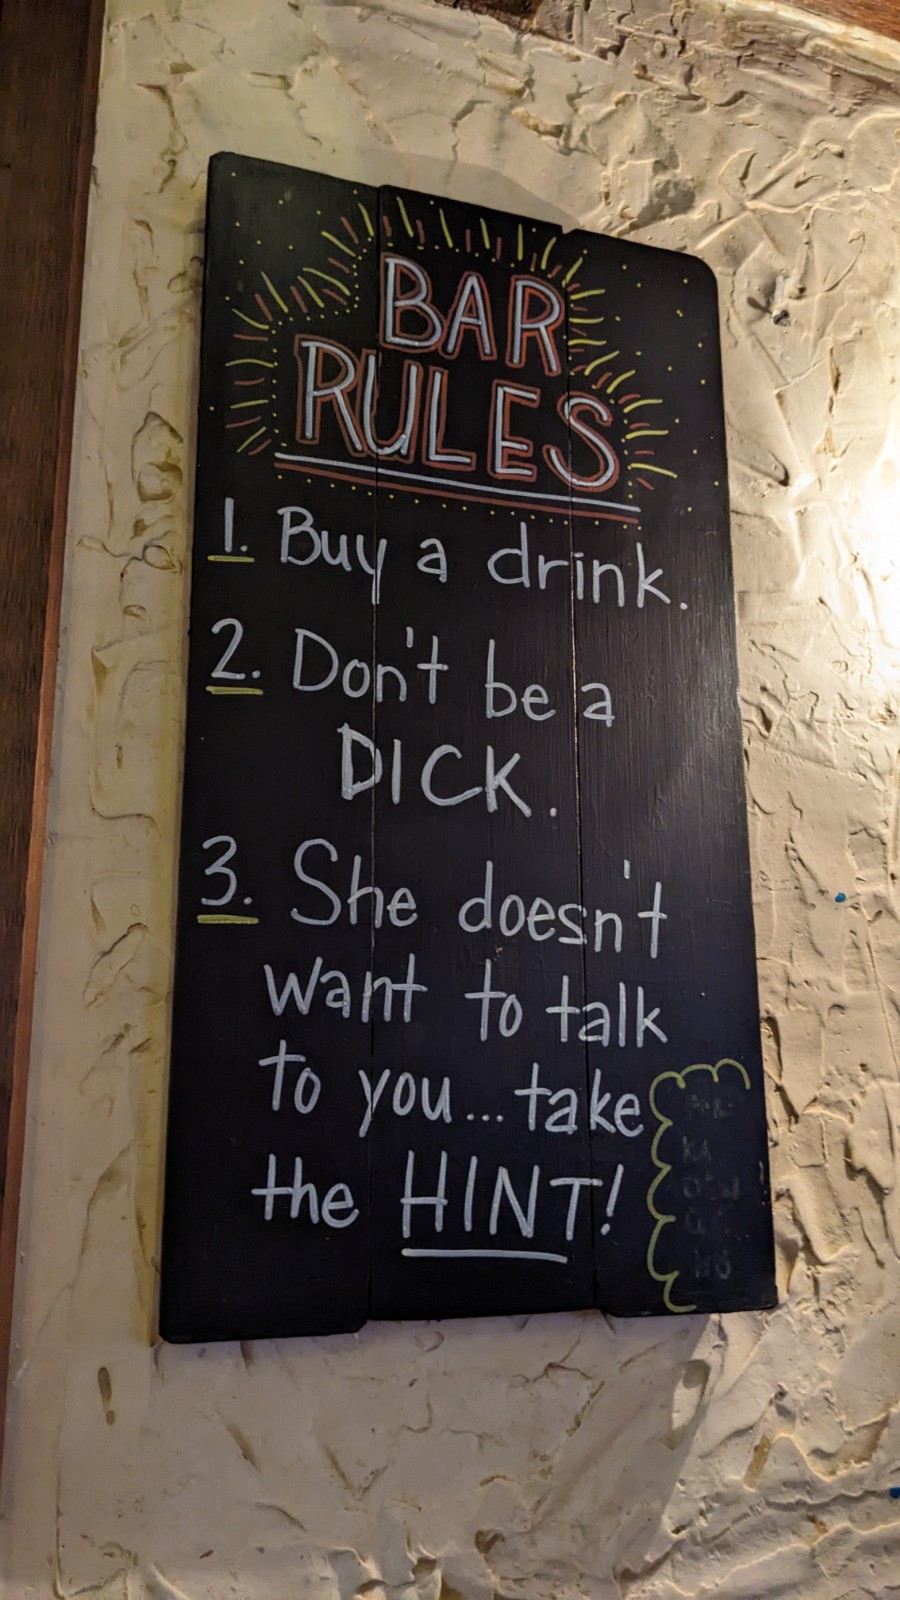 BAR
RULES
1. Buy a drink.
2. Don't be a
DICK.
3. She doesn't
want to talk
to you... take
the HINT!